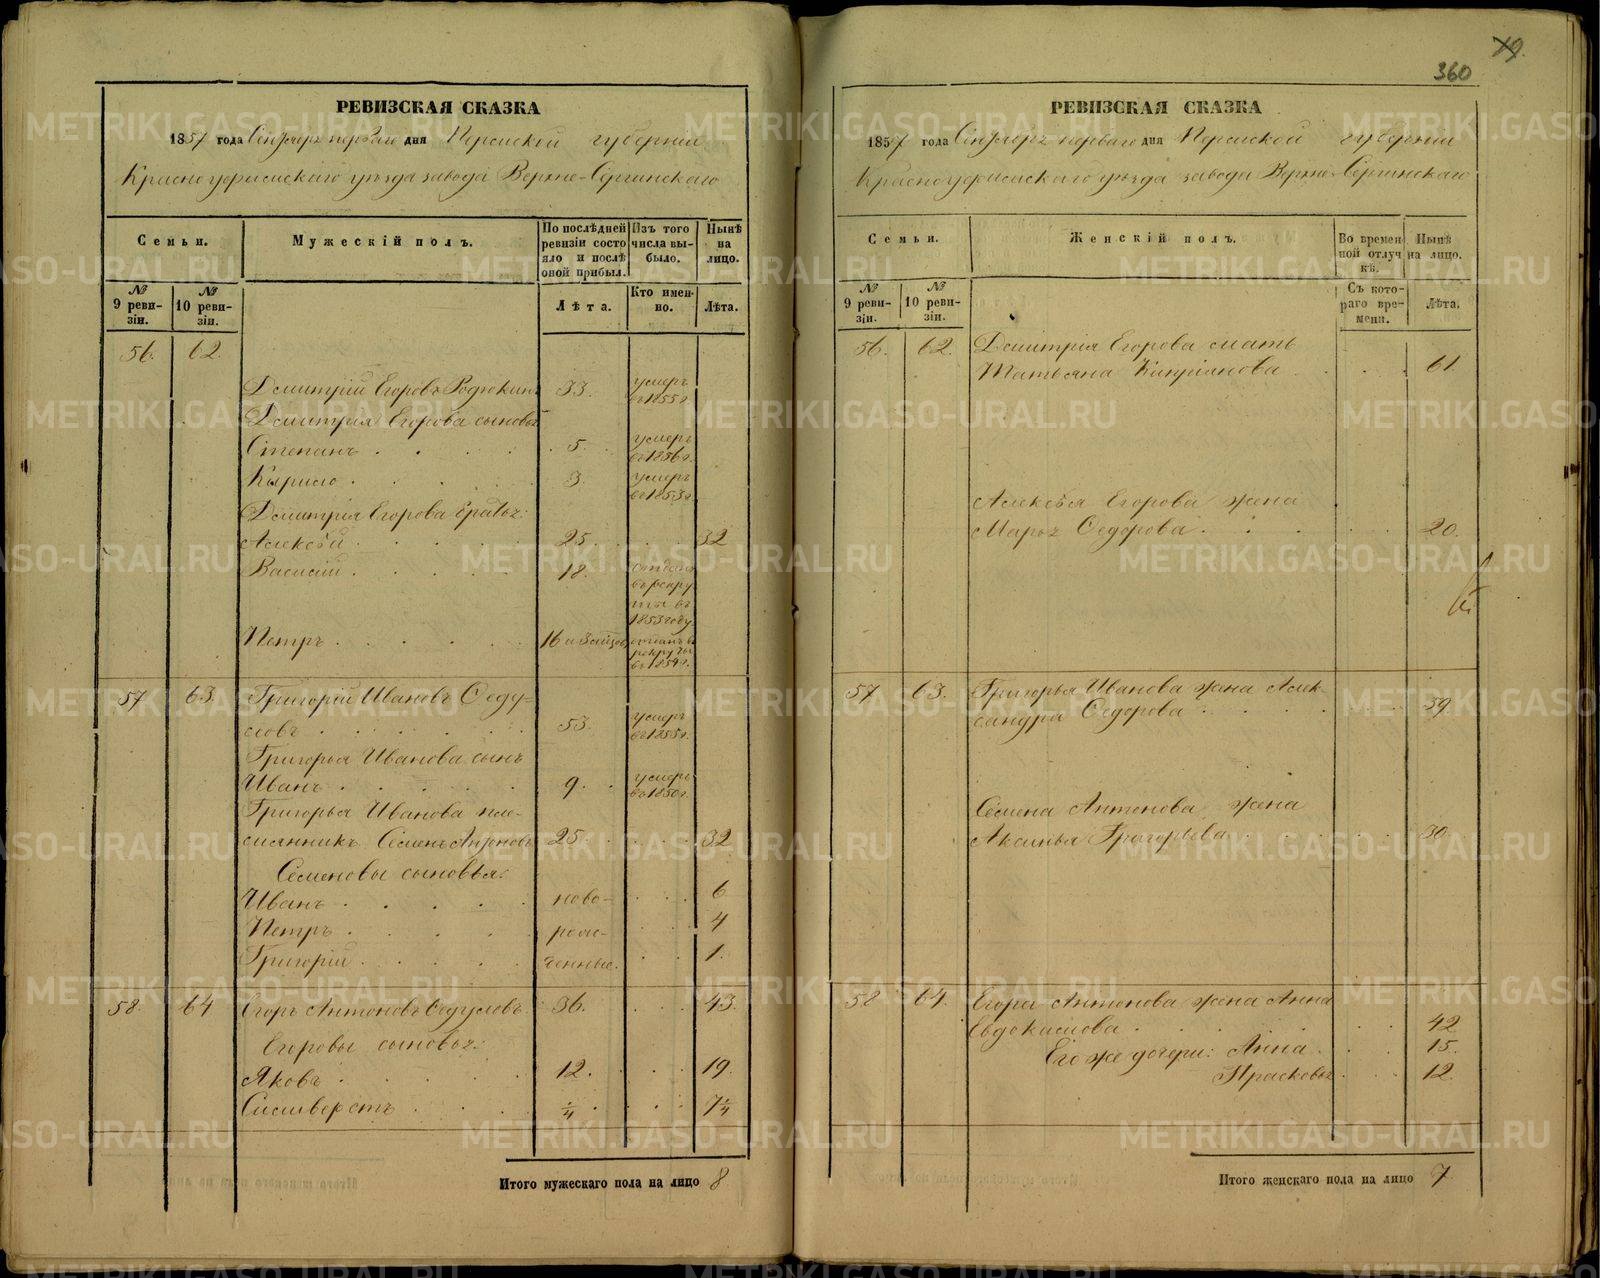 19.
360
РЕВИЗСКАЯ СКАЗКА
1857 года Сентября перваго дня Пермской губерніи
Красноуфимскаго уѣзда завода Верхне-Сергинскаго
Семьи.
Мужескій полъ.
По послѣдней ревизіи состояло и послѣ оной прибыл.
Изъ того числа выбыло.
Нынѣ на лицо.
№ 9 ревизіи.
№ 10 ревизіи.
Лѣта.
Кто именно.
Лѣта.
56. 62.
Дмитрій Егоровъ Родюкинъ 33. умеръ въ 1855 г.
Дмитрія Егорова сыновья
Степанъ 5. умеръ въ 1856 г.
Кирило 3. умеръ въ 1853 г.
Дмитрія Егорова братья:
Алексѣй 25. 32
Василій 18. отданъ въ рекруты въ 1853 году
Петръ 16 отданъ въ рекруты въ 1854 г.
57 63. Григорій Ивановъ Седуловъ 53. умеръ въ 1855 г.
Григорья Иванова сынъ
Иванъ 9. умеръ въ 1850 г.
Григорья Иванова племянникъ Семенъ Антоновъ 25. 32
Семеновы сыновья:
Иванъ ново- 6
Петръ рож- 4
Григорій денные. 1.
58. 64 Егоръ Антоновъ Седуловъ 36. 43.
Егоровы сыновья:
Яковъ 12. 19.
Силиверстъ 1/4 7 1/4
Итого мужескаго пола на лицо 8
РЕВИЗСКАЯ СКАЗКА
1857 года Сентября перваго дня Пермской губерніи
Красноуфимскаго уѣзда завода Верхне-Сергинскаго
Семьи.
Женскій полъ.
Во временной отлучкѣ.
Нынѣ на лицо.
№ 9 ревизіи.
№ 10 ревизіи.
Съ котораго времени.
Лѣта.
56. 62. Дмитрія Егорова мать
Татьяна Кипріянова 61.
Алексѣя Егорова жена
Марья Федорова 20.
57 63. Григорья Иванова жена Александра Федорова 59.
Семена Антонова жена
Аксинья Григорьева 30.
58 64. Егора Антонова жена Анна
Евдокимова 42
Его же дочери: Анна 15.
Прасковья 12.
Итого женскаго пола на лицо 7
METRIKI.GASO-URAL.RU